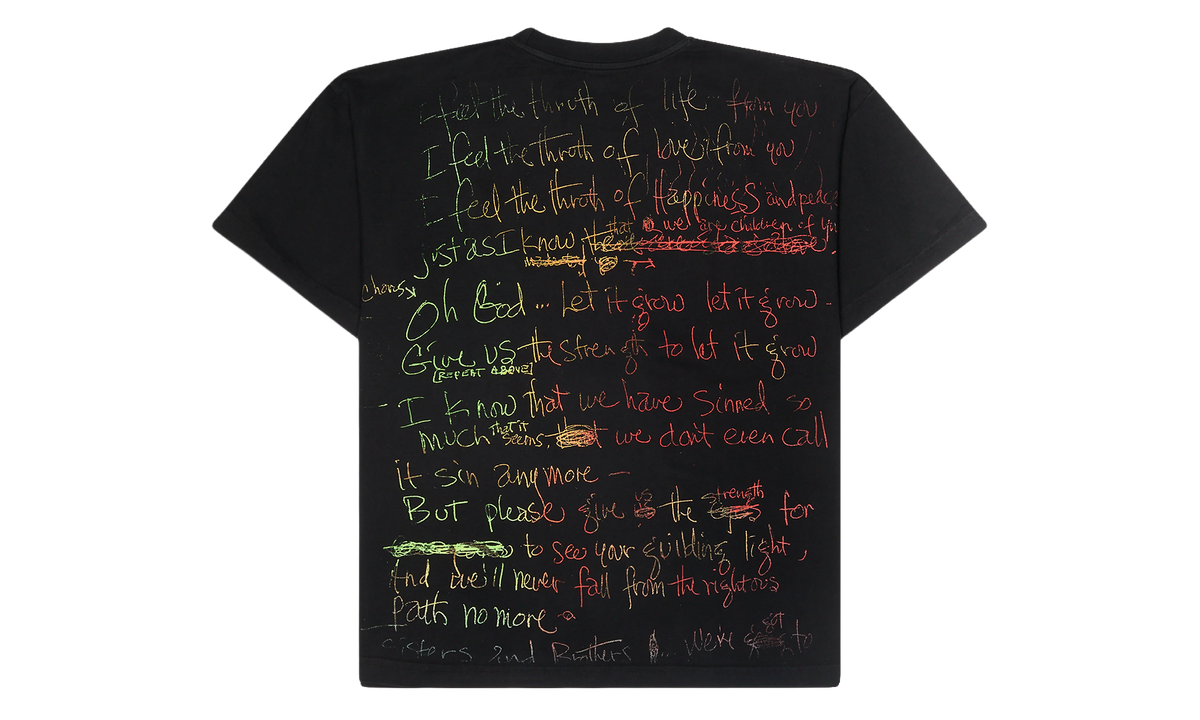 I feel the throth of life from you
I feel the throth of love from you
I feel the throth of Happiness and peace
just as I know that we are children of
Chorus
Oh God... Let it grow let it grow -
Give us the strength to let it grow
[REPEAT ABOVE]
I know that we have sinned so
much that it seems, that we don't even call
it sin anymore -
But please give us the strength for
to see your guilding light,
And we'll never fall from the rightous
path no more
Sisters and Brothers ... we're got to